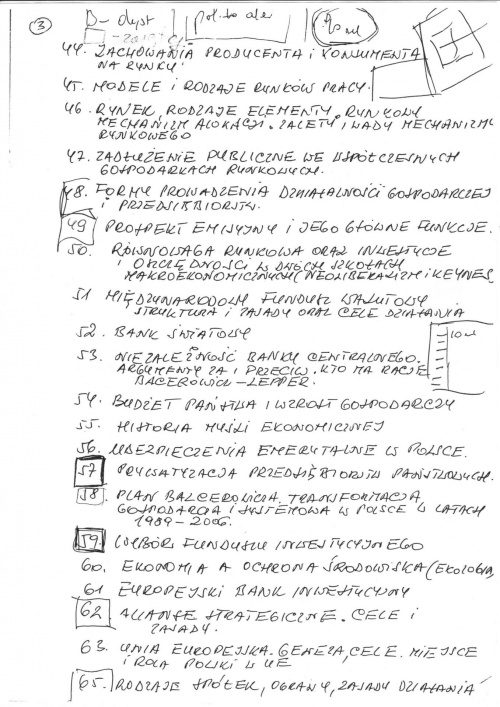 3
44. ZACHOWANIA PRODUCENTA I KONSUMENTA
NA RYNKU
45. MODELE I RODZAJE RYNKÓW PRACY.
46. RYNEK, RODZAJE ELEMENTY. RYNKOWY
MECHANIZM ALOKACJI. ZALETY I WADY MECHANIZMU
RYNKOWEGO
47. ZADŁUŻENIE PUBLICZNE WE WSPÓŁCZESNYCH
GOSPODARKACH RYNKOWYCH.
48. FORMY PROWADZENIA DZIAŁALNOŚCI GOSPODARCZEJ
I PRZEDSIĘBIORSTW.
49 PROSPEKT EMISYJNY I JEGO GŁÓWNE FUNKCJE.
50. RÓWNOWAGA RYNKOWA ORAZ INWESTYCJE
I OSZCZĘDNOŚCI W DWÓCH SZKOŁACH
MAKROEKONOMICZNYCH (NEOLIBERALIZM I KEYNES
51 MIĘDZYNARODOWY FUNDUSZ WALUTOWY
STRUKTURA I ZASADY ORAZ CELE DZIAŁANIA
52. BANK ŚWIATOWY
53. NIEZALEŻNOŚĆ BANKU CENTRALNEGO.
ARGUMENTY ZA I PRZECIW. KTO MA RACJĘ
BALCEROWICZ - LEPPER.
54. BUDŻET PAŃSTWA I WZROST GOSPODARCZY
55. HISTORIA MYŚLI EKONOMICZNEJ
56. UBEZPIECZENIA EMERYTALNE W POLSCE.
57 PRYWATYZACJA PRZEDSIĘBIORSTW PAŃSTWOWYCH.
58. PLAN BALCEROWICZA. TRANSFORMACJA
GOSPODARCZA I SYSTEMOWA W POLSCE W LATACH
1989-2006.
59. WYBÓR FUNDUSZU INWESTYCYJNEGO
60. EKONOMIA A OCHRONA ŚRODOWISKA (EKOLOGIA)
61 EUROPEJSKI BANK INWESTYCYJNY
62 ALIANSE STRATEGICZNE. CELE I
ZASADY.
63. UNIA EUROPEJSKA. GENEZA, CELE. MIEJSCE
I ROLA POLSKI W UE
65. RODZAJE SPÓŁEK, ORGANY, ZASADY DZIAŁANIA